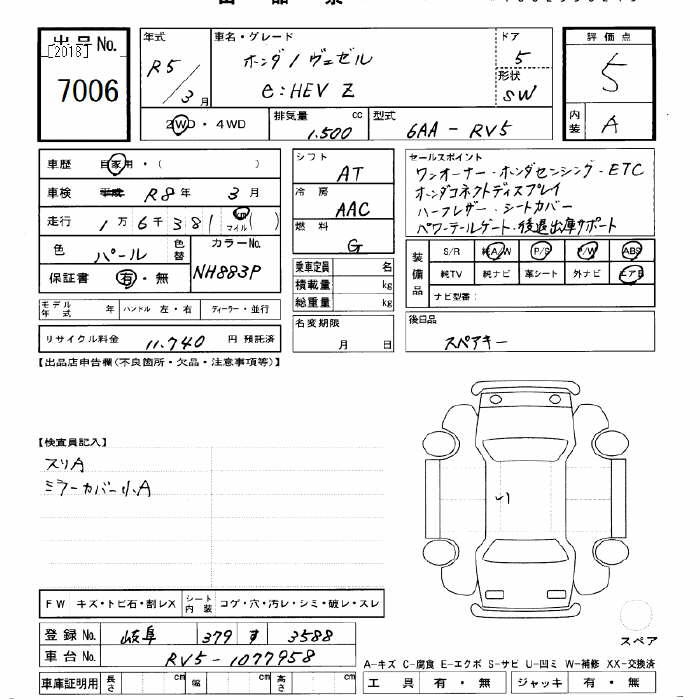 出品No.
[2018]
7006
年式
R5/3月
車名・グレード
ホンダ / ヴェゼル
e:HEV Z
ドア
5
形状
SW
評価点
5
内装
A
2WD・4WD
排気量
1.500 cc
型式
6AA - RV5
車歴 自家用・( )
車検 R8年 3月
走行 1万6千381 km マイル ( )
色 パール 色替
カラーNo.
NH883P
保証書 有・無
モデル年式 年 ハンドル 左・右 ディーラー・並行
リサイクル料金 11.740 円 預託済
シフト
AT
冷房
AAC
燃料
G
乗車定員 名
積載量 kg
総重量 kg
名変期限
月 日
セールスポイント
ワンオーナー・ホンダセンシング・ETC
ホンダコネクトディスプレイ
ハーフレザー・シートカバー
パワーテールゲート・後退出庫サポート
装備品
S/R 純A/W P/S P/W ABS
純TV 純ナビ 革シート 外ナビ エアB
ナビ型番:
後日品
スペアキー
【出品店申告欄(不良箇所・欠品・注意事項等)】
【検査員記入】
スリA
ミラーカバー小A
FW キズ・トビ石・割レX シート内装 コゲ・穴・汚レ・シミ・破レ・スレ
登録No. 岐阜 379 す 3588
車台No. RV5-1077958
車庫証明用 長さ cm 幅 cm 高さ cm
スペア
A-キズ C-腐食 E-エクボ S-サビ U-凹ミ W-補修 XX-交換済
工具 有・無 ジャッキ 有・無